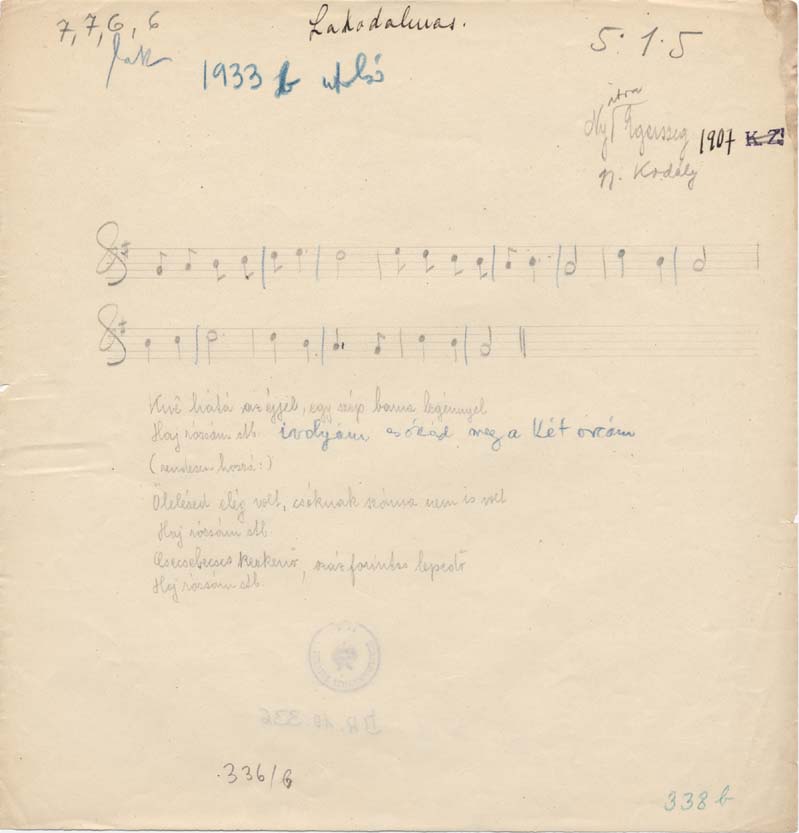 7, 7, 6, 6
Lakodalmas.
5 : 1 . 5
1933 b utolsó
itra
Ny Egerszeg 1907 K. Z.
gy. Kodály
hátá az éjjel, egy szép barna legénnyel
Haj rózsám stb. ibolyám csókád meg a két orcám
(rendesen hozzá:)
Ölelésed elég volt, csóknak száma nem is volt
Haj rózsám stb.
Csecsebecses keszkenő, száz forintos lepedő
Haj rózsám stb.
336/6
338 b